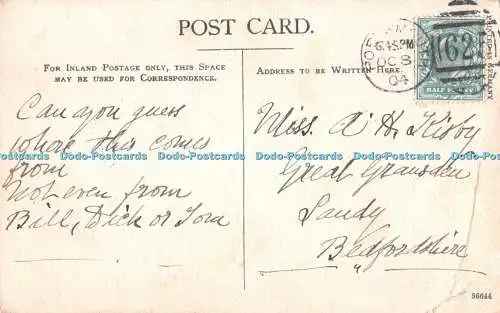 POST CARD.
FOR INLAND POSTAGE ONLY, THIS SPACE
MAY BE USED FOR CORRESPONDENCE.
ADDRESS TO BE WRITTEN HERE.
6.15 PM
OC 8
04
62
HALF PENNY
Can you guess
where this comes
from
Not even from
Bill, Dick or Tom
Miss. A H. Kisby
Great Gransden
Sandy
Bedfordshire
Dodo-Postcards Dodo-Postcards Dodo-Postcards Dodo-Postcards Dodo-Postcards
36644